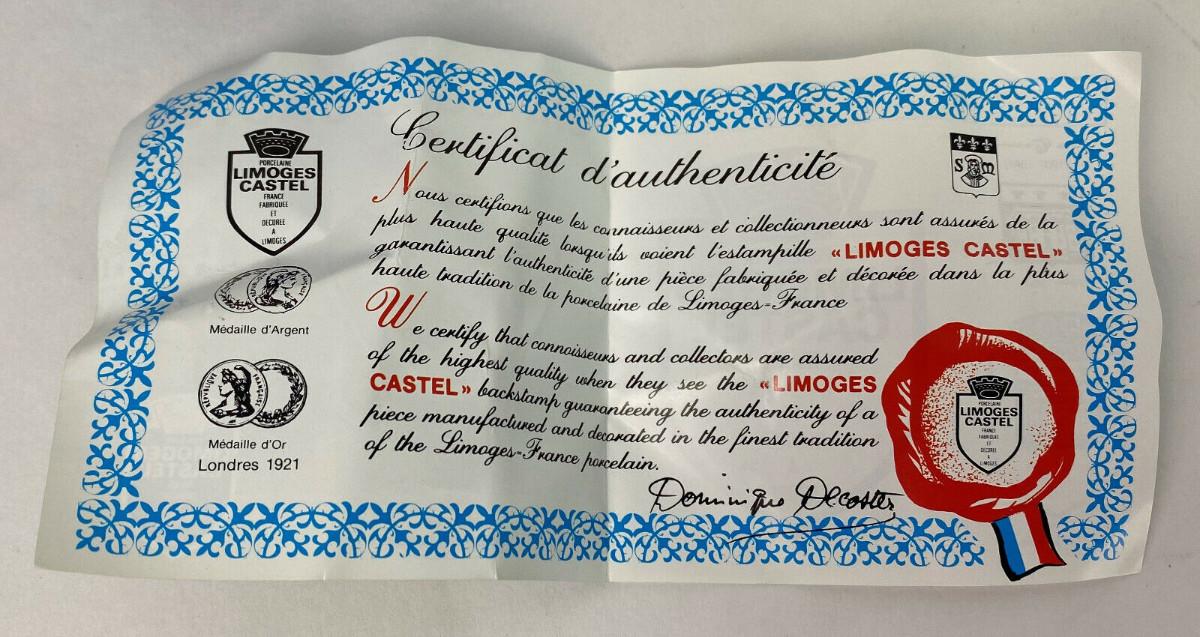 PORCELAINE
LIMOGES
CASTEL
FRANCE
FABRIQUEE
ET
DECOREE
A
LIMOGES
Médaille d'Argent
Médaille d'Or
Londres 1921
Certificat d'authenticité
S M
Nous certifions que les connaisseurs et collectionneurs sont assurés de la
plus haute qualité lorsqu'ils voient l'estampille «LIMOGES CASTEL»
garantissant l'authenticité d'une pièce fabriquée et décorée dans la plus
haute tradition de la porcelaine de Limoges-France
We certify that connoisseurs and collectors are assured
of the highest quality when they see the «LIMOGES
CASTEL» backstamp guaranteeing the authenticity of a
piece manufactured and decorated in the finest tradition
of the Limoges-France porcelain.
Dominique Decoster
PORCELAINE
LIMOGES
CASTEL
FRANCE
FABRIQUEE
ET
DECOREE
A
LIMOGES